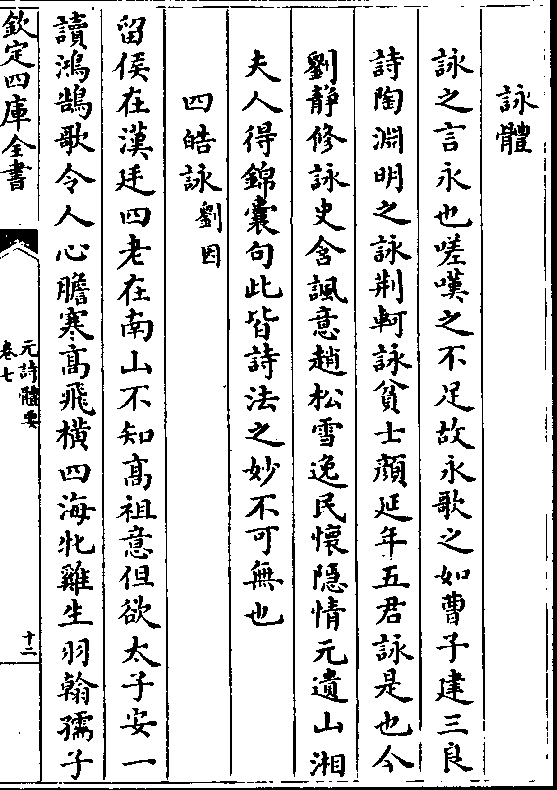 詠體
詠之言永也嗟嘆之不足故永歌之如曹子建三良
詩陶淵明之詠荆軻詠貧士顔延年五君詠是也今
劉静修詠史含諷意趙松雪逸民懷隱情元遺山湘
夫人得錦囊句此皆詩法之妙不可無也
四皓詠 劉因
留侯在漢廷四老在南山不知髙祖意但欲太子安一
讀鴻鵠歌令人心膽寒髙飛橫四海牝雞生羽翰孺子
欽定四庫全書
元詩體要
卷七
十二